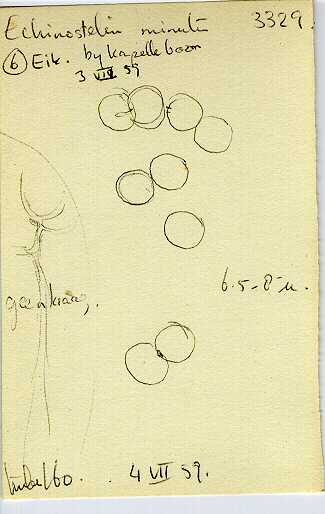 Echinostelium minutu 3329.
6 Eik. by kapelleboom
3 VIII 59
geen kraag.
6.5-8 µ.
4 VII 59.